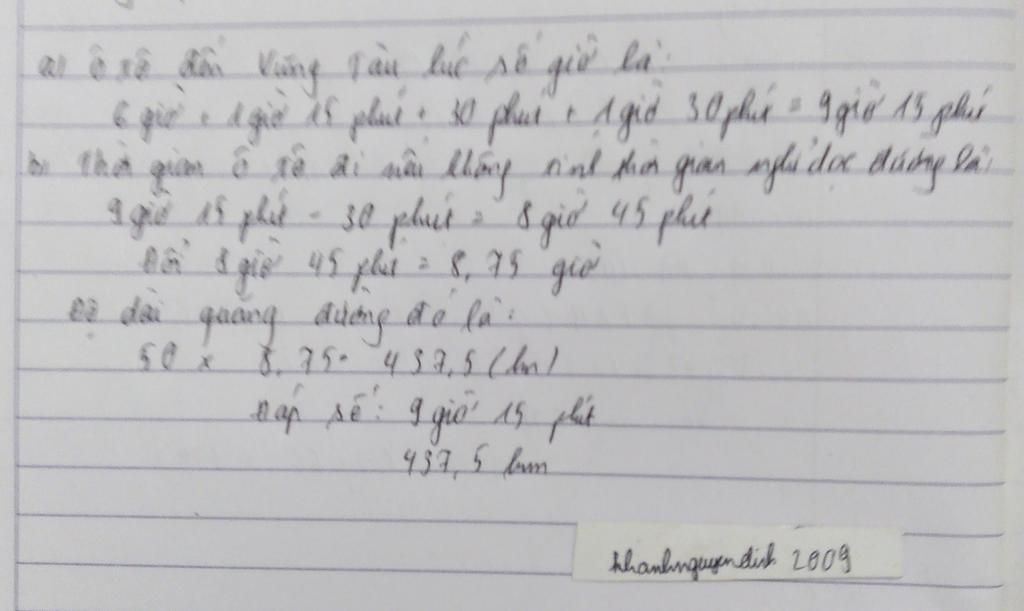 a) Ô tô đến Vũng Tàu lúc số giờ là:
6 giờ + 1 giờ 15 phút + 30 phút + 1 giờ 30 phút = 9 giờ 15 phút
b) Thời gian ô tô đi nếu không tính thời gian nghỉ dọc đường là:
9 giờ 15 phút - 30 phút = 8 giờ 45 phút
Đổi 8 giờ 45 phút = 8,75 giờ
Độ dài quãng đường đó là:
50 x 8,75 = 437,5 (km)
Đáp số: 9 giờ 15 phút
437,5 km
khanhnguyendinh 2009